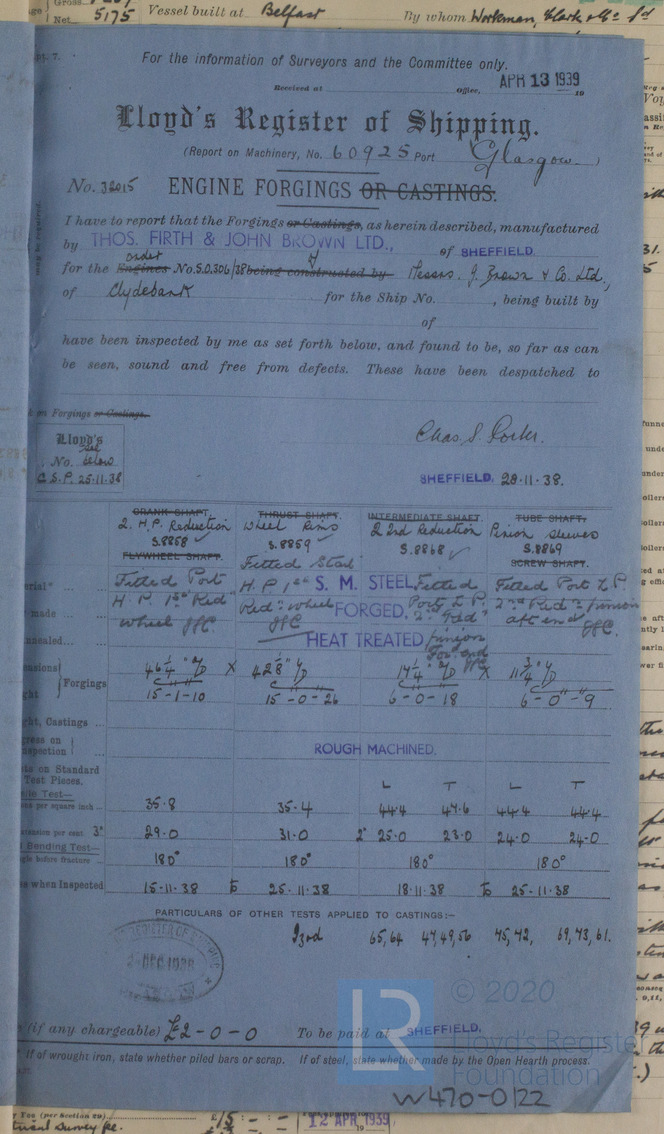 Gross
Net 5175 Vessel built at Belfast By whom Workman, Clark & Co Ld
For the information of Surveyors and the Committee only.
Received at Office, APR 13 1939 19
Lloyd's Register of Shipping.
(Report on Machinery, No. 60925 Port Glasgow )
No. 32015 ENGINE FORGINGS OR CASTINGS.
I have to report that the Forgings or Castings, as herein described, manufactured
by THOS. FIRTH & JOHN BROWN LTD., of SHEFFIELD.
order of
for the Engines No. S.O.306/38 being constructed by Messrs. J. Brown & Co. Ltd.,
of Clydebank for the Ship No. , being built by
of
have been inspected by me as set forth below, and found to be, so far as can
be seen, sound and free from defects. These have been despatched to
on Forgings or Castings.
Chas. S. Porter.
Lloyd's
See
No. below
C.S.P. 25-11-38
SHEFFIELD. 28-11-38.
CRANK SHAFT. THRUST SHAFT. INTERMEDIATE SHAFT. TUBE SHAFT.
2. H.P. Reduction Wheel Rims 2 2nd Reduction Pinion sleeves
S.8858 S.8859 S.8868 S.8869
FLYWHEEL SHAFT. SCREW SHAFT.
Fitted Port Fitted Star S. M. STEEL Fitted Fitted Port L.P.
H.P. 1st Red H.P. 1st Red wheel FORGED. Port L.P. 2nd Red pinion
wheel HEAT TREATED pinion aft end
Forgings
15-1-10 15-0-26 6-0-18 6-0-9
ght, Castings ...
ROUGH MACHINED.
ts on Standard
Test Pieces.
L T L T
ons per square inch 35.8 35.4 44.4 47.6 44.4 44.4
tension per cent. 3" 29.0 31.0 2" 25.0 23.0 24.0 24.0
Bending Test—
gle before fracture 180° 180° 180° 180°
s when Inspected 15-11-38 to 25-11-38 18-11-38 to 25-11-38
PARTICULARS OF OTHER TESTS APPLIED TO CASTINGS:—
Izod 65,64 47,49,56 45,42, 69,73,61.
© 2020
(if any chargeable) £2-0-0 To be paid at SHEFFIELD.
LR
Lloyd's Register
Foundation
If of wrought iron, state whether piled bars or scrap. If of steel, state whether made by the Open Hearth process.
W470-0122
Fee (per Section 29) £15 : - : -
12 APR 1939